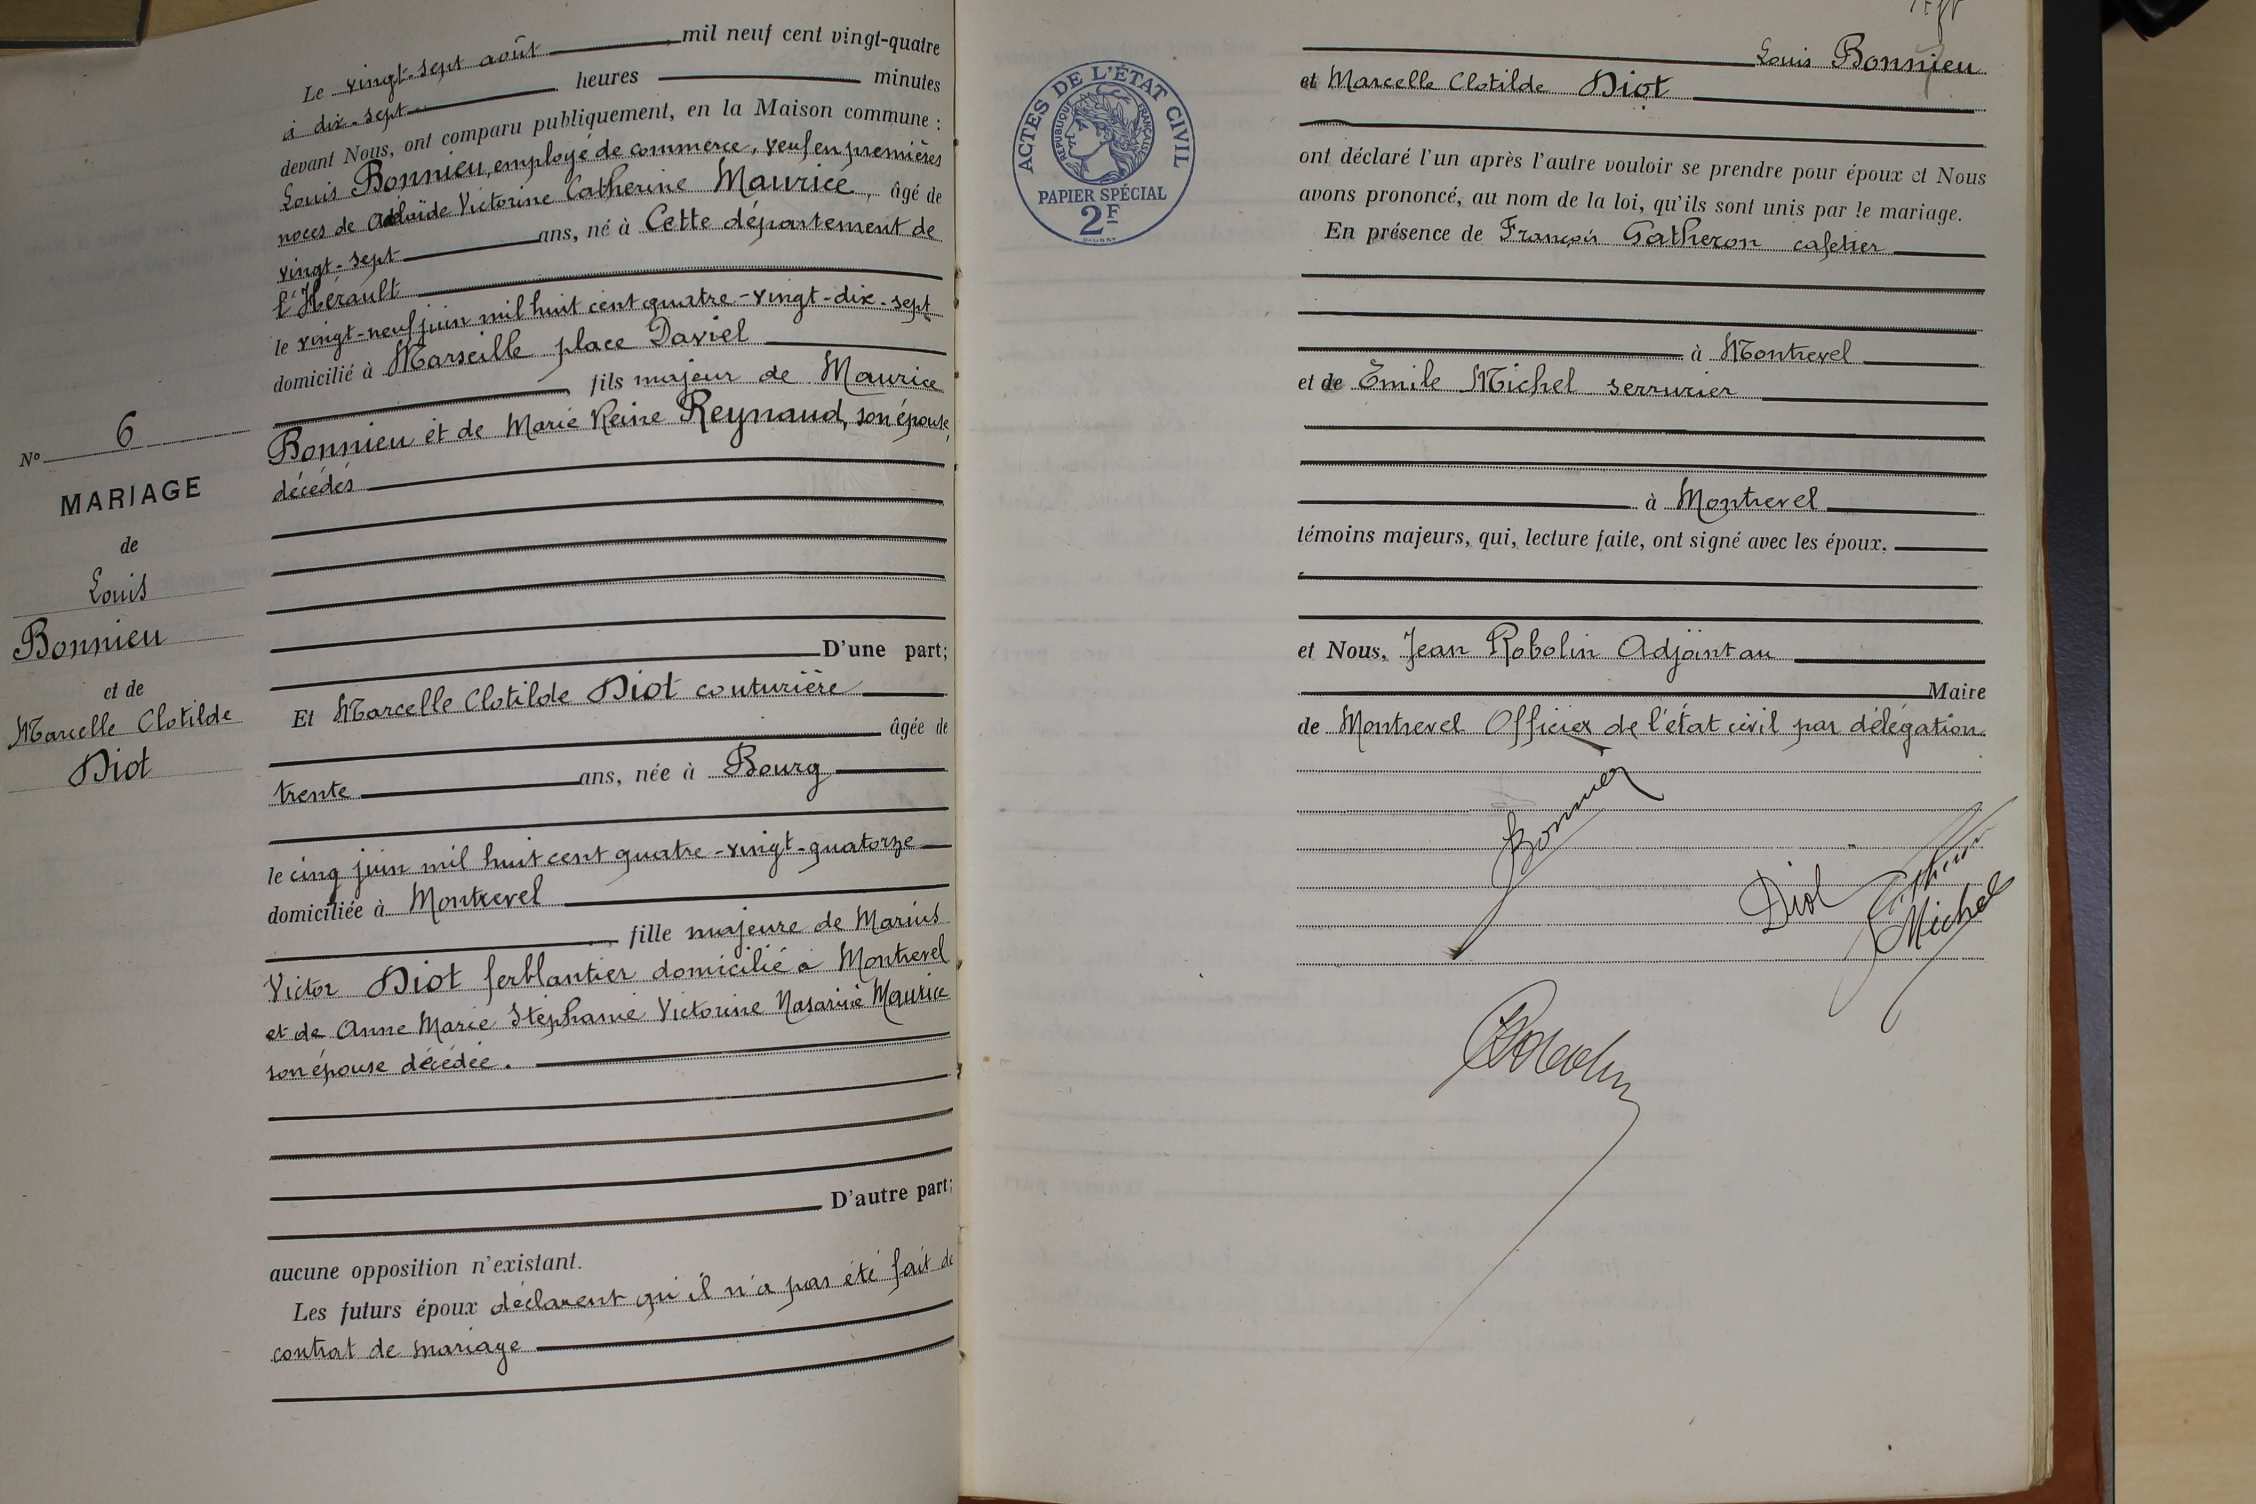 Le vingt-sept août mil neuf cent vingt-quatre
à dix-sept heures minutes
devant Nous, ont comparu publiquement, en la Maison commune :
Louis Bonnieu, employé de commerce, veuf en premières
noces de Adélaïde Victorine Catherine Maurice, âgé de
vingt-sept ans, né à Cette département de
l'Hérault
le vingt-neuf juin mil huit cent quatre-vingt-dix-sept
domicilié à Marseille place Daviel
fils majeur de Maurice
Bonnieu et de Marie Reine Reynaud, son épouse,
décédés
D'une part;
Et Marcelle Clotilde Diot couturière
âgée de
trente ans, née à Bourg
le cinq juin mil huit cent quatre-vingt-quatorze
domiciliée à Montrevel
fille majeure de Marius
Victor Diot ferblantier domicilié à Montrevel
et de Anne Marie Stéphanie Victorine Nasarine Maurice
son épouse décédée.
D'autre part;
aucune opposition n'existant.
Les futurs époux déclarent qu'il n'a pas été fait de
contrat de mariage
N° 6
MARIAGE
de
Louis
Bonnieu
et de
Marcelle Clotilde
Diot
ACTES DE L'ÉTAT CIVIL
RÉPUBLIQUE FRANÇAISE
PAPIER SPÉCIAL
2F
Louis Bonnieu
et Marcelle Clotilde Diot
ont déclaré l'un après l'autre vouloir se prendre pour époux et Nous
avons prononcé, au nom de la loi, qu'ils sont unis par le mariage.
En présence de François Gatheron cafetier
à Montrevel
et de Emile Michel serrurier
à Montrevel
témoins majeurs, qui, lecture faite, ont signé avec les époux.
et Nous, Jean Robolin Adjoint au
Maire
de Montrevel Officier de l'état civil par délégation.
Bonnieu
Diot
Michel
Robolin